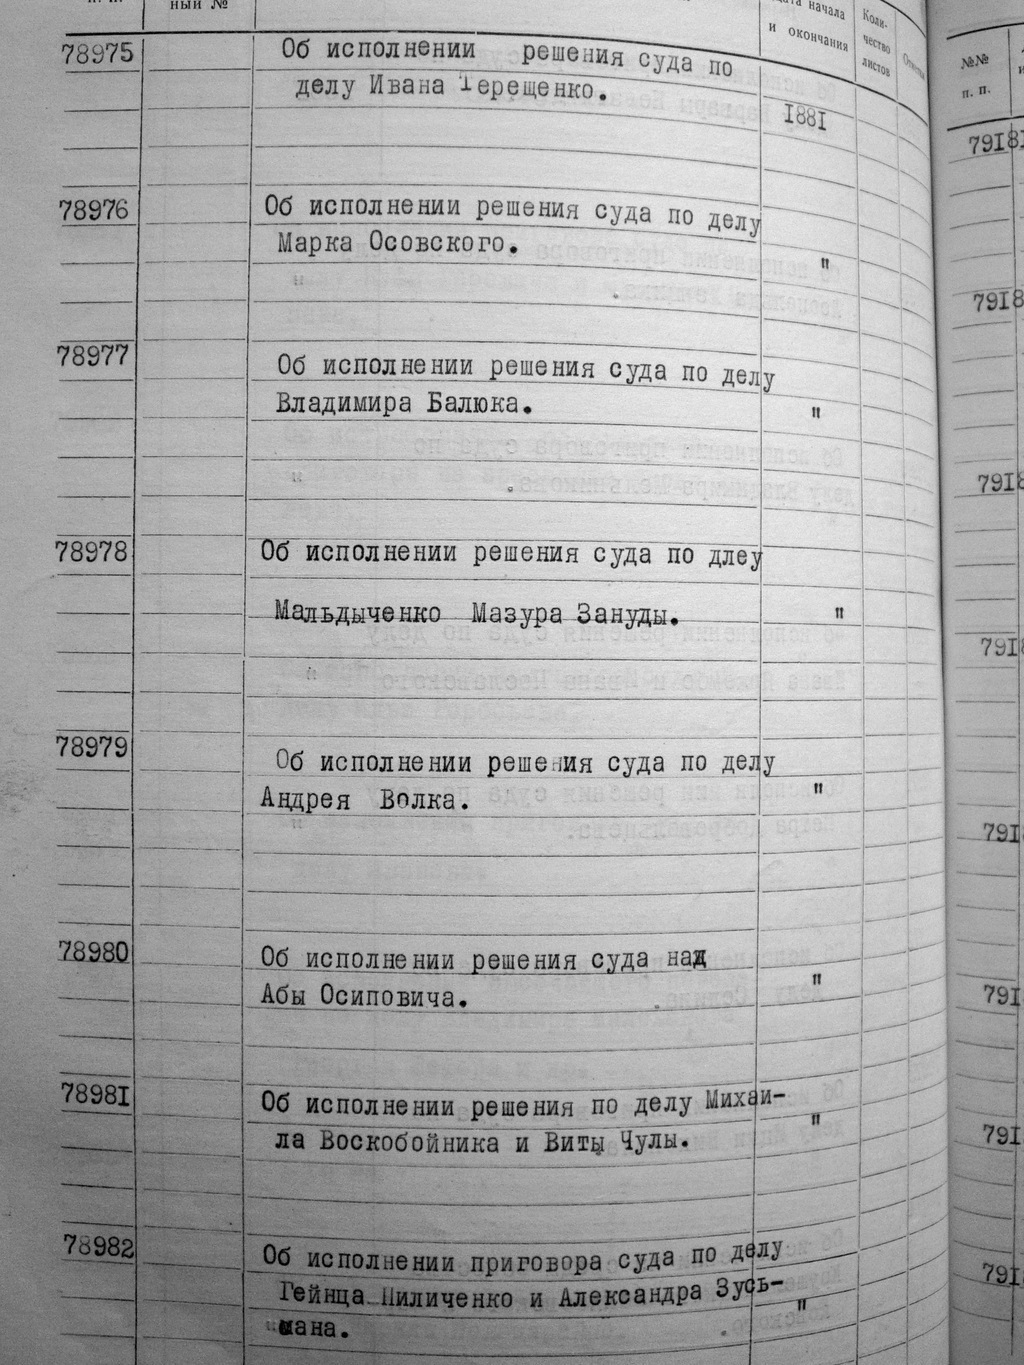 ный №
Дата начала
и окончания
Коли-
чество
листов
78975
Об исполнении решения суда по
делу Ивана Терещенко.
1881
78976
Об исполнении решения суда по делу
Марка Осовского.
"
78977
Об исполнении решения суда по делу
Владимира Балюка.
"
78978
Об исполнении решения суда по длеу
Мальдыченко Мазура Зануды.
"
78979
Об исполнении решения суда по делу
Андрея Волка.
"
78980
Об исполнении решения суда над
Абы Осиповича.
"
78981
Об исполнении решения по делу Михаи-
ла Воскобойника и Виты Чулы.
"
78982
Об исполнении приговора суда по делу
Гейнца Пиличенко и Александра Зусь-
мана.
"
№№
п. п.